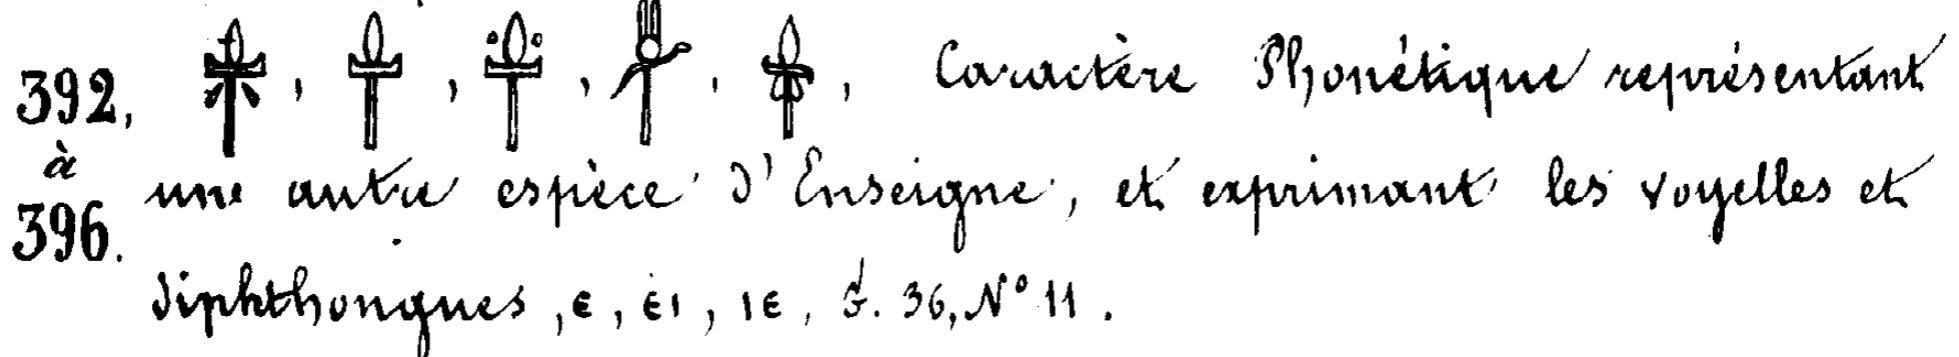 392, à 396. , , , , , Caractère Phonétique représentant
une autre espèce d'Enseigne, et exprimant les voyelles et
diphthongues, ⲉ, ⲉⲓ, ⲓⲉ, G. 36, Nº 11.